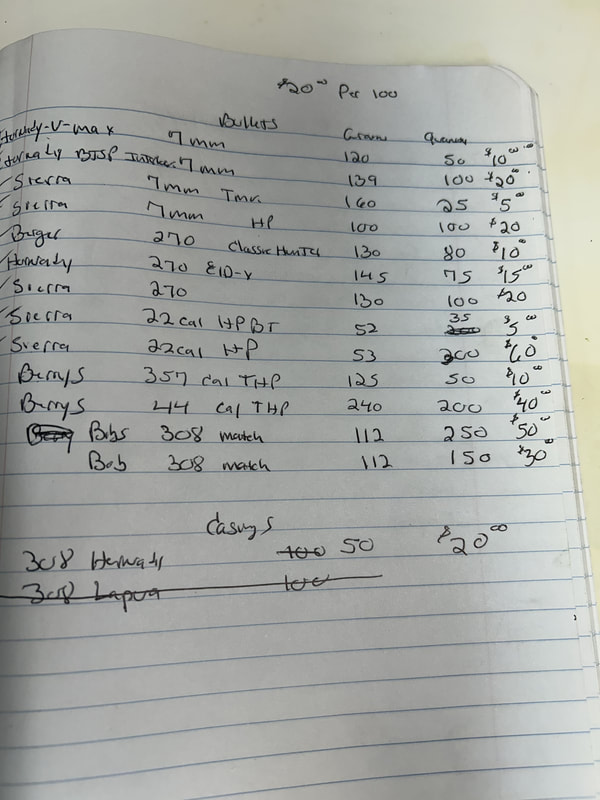 $20⁰⁰ Per 100
Bullets Grains Quantity
Hornady-V-max 7mm 120 50 $10⁰⁰
Hornady BTSP 7mm 139 100 $20⁰⁰
Sierra 7mm Tmk 160 25 $5⁰⁰
Sierra 7mm HP 100 100 $20
Berger 270 Classic Hunter 130 80 $10⁰⁰
Hornady 270 ElD-X 145 75 $15⁰⁰
Sierra 270 130 100 $20
Sierra 22cal HPBT 52 35 $5⁰⁰
Sierra 22cal HP 53 300 $60
Berrys 357 cal THP 125 50 $10⁰⁰
Berrys 44 cal THP 240 200 $40⁰⁰
Bibs 308 match 112 250 $50⁰⁰
Bob 308 match 112 150 $30⁰⁰
Casings
308 Hornady 100 50 $20⁰⁰
308 Lapua 100